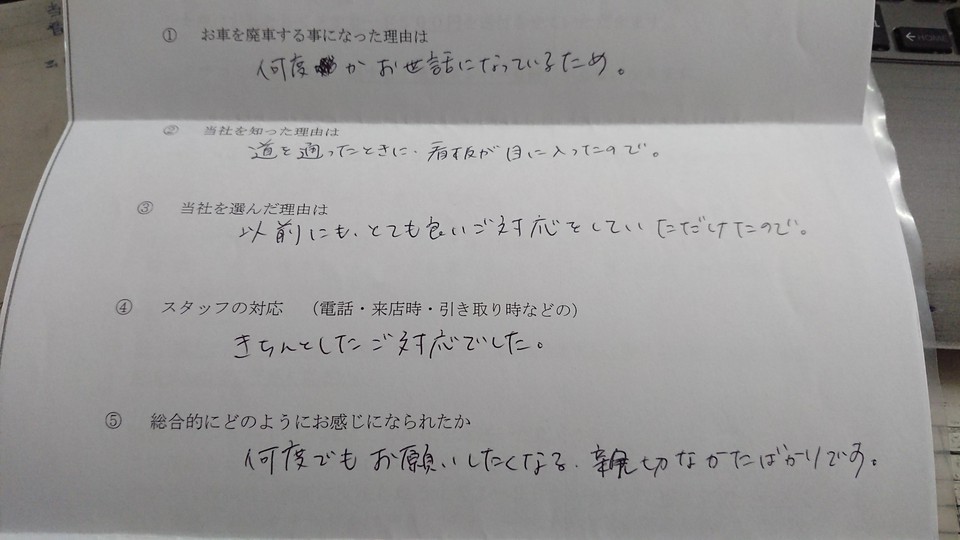 ① お車を廃車する事になった理由は
何度か お世話になっているため。
② 当社を知った理由は
道を通ったときに、看板が目に入ったので。
③ 当社を選んだ理由は
以前にも、とても良いご対応をしていただけたので。
④ スタッフの対応 （電話・来店時・引き取り時などの）
きちんとしたご対応でした。
⑤ 総合的にどのようにお感じになられたか
何度でも お願いしたくなる、親切なかたばかりです。